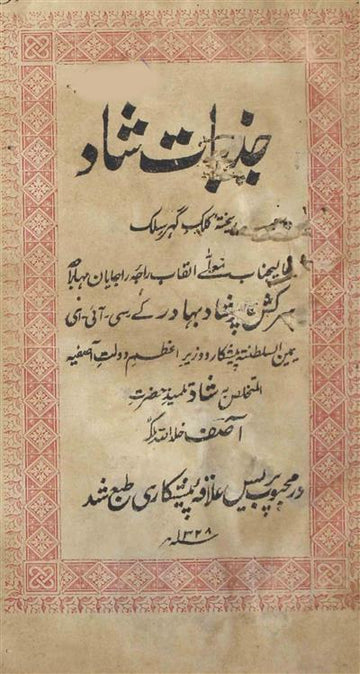 جذبات شاد
ریختہ کلک گہر سلک
عالیجناب معلیٰ القاب راجہ راجایان مہاراجہ
سر کشن پرشاد بہادر کے۔سی۔آئی۔ای
یمین السلطنۃ پیشکار و وزیر اعظم دولت آصفیہ
المتخلص بہ شاد تلمیذ حضرت
آصف خلد اللہ ملکہ
در محبوب پریس علاقہ پیشکاری طبع شد
سنہ ۱۳۲۸ھ